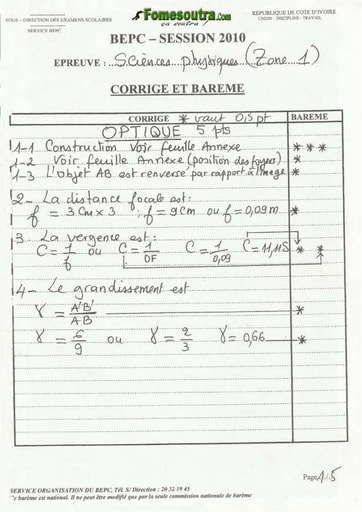 Fomesoutra.com
ça soutra !
SOUS – DIRECTION DES EXAMENS SCOLAIRES
SERVICE BEPC
REPUBLIQUE DE COTE D'IVOIRE
UNION – DISCIPLINE – TRAVAIL
BEPC – SESSION 2010
EPREUVE : Sciences physiques (Zone 1)
CORRIGE ET BAREME
CORRIGE * vaut 0,5 pt
BAREME
OPTIQUE 5 pts
1-1 Construction Voir feuille Annexe * * *
1-2 Voir feuille Annexe (position des foyers) *
1-3 L'objet AB est renversé par rapport à l'image *
2- La distance focale est:
f = 3cm x 3 , f = 9cm ou f = 0,09m *
3. La vergence est:
C = 1/f ou C = 1/OF C = 1/0,09 C = 11,11 δ * *
4- Le grandissement est
γ = A'B'/AB *
γ = 6/9 ou γ = 2/3 γ = 0,66 *
Page 1/5
SERVICE ORGANISATION DU BEPC, Tél. S/ Direction : 20 32 19 45
e barème est national. Il ne peut être modifié que par la seule commission nationale de barème